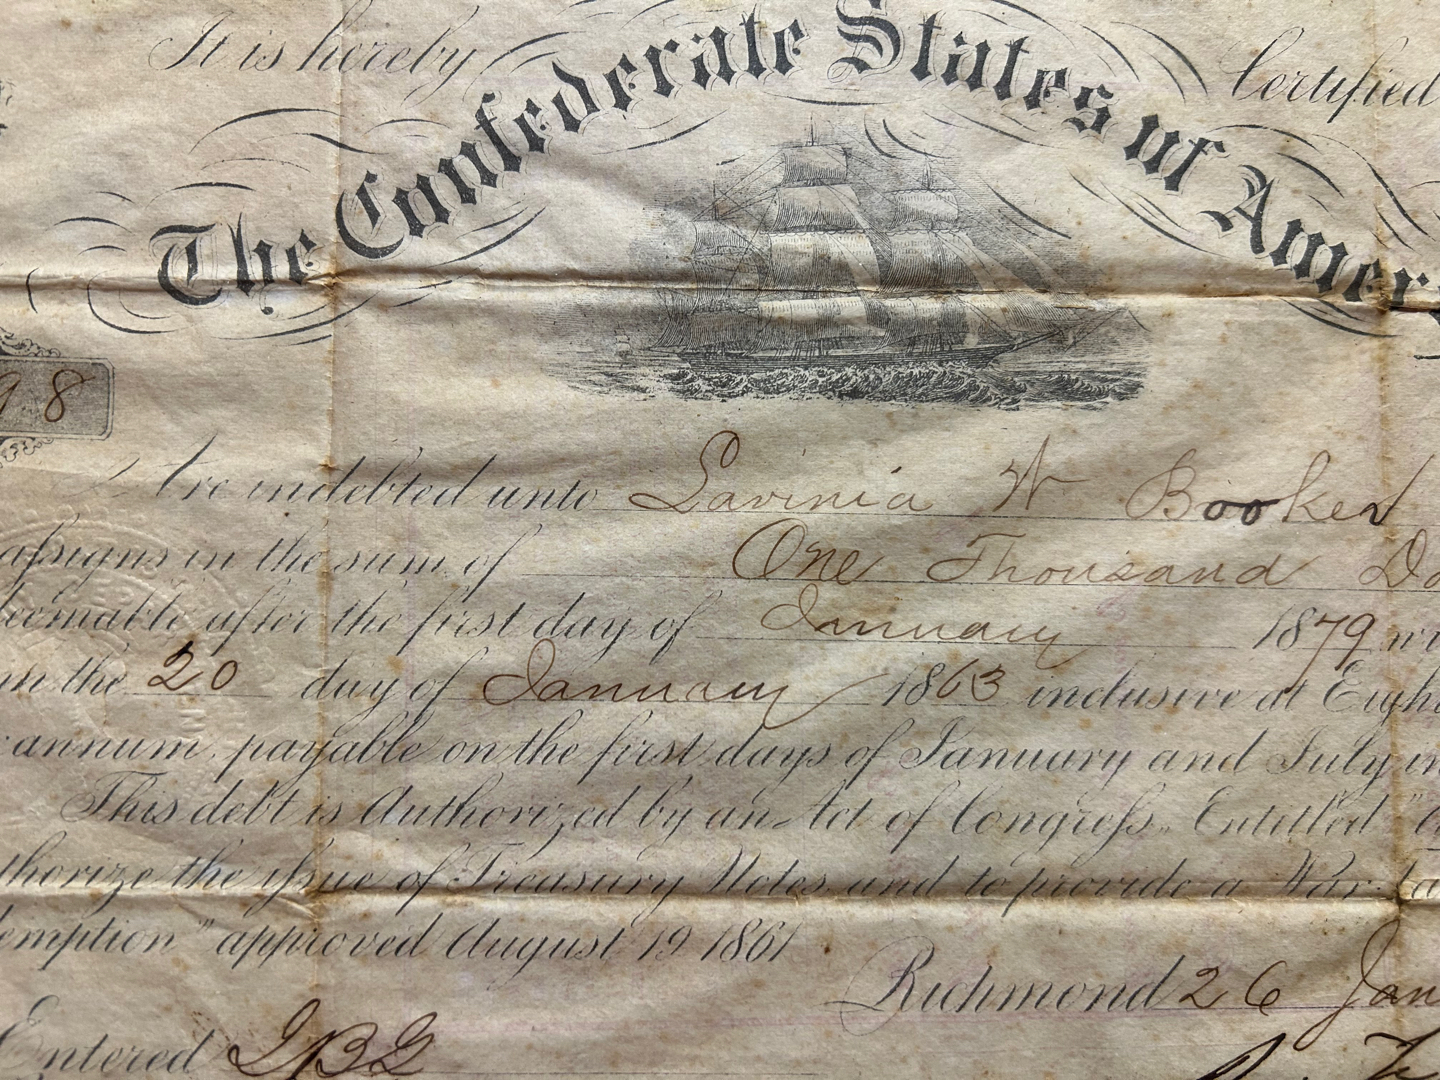 It is hereby Certified
The Confederate States of Amer
98
Are indebted unto Lavinia W Booker
assigns in the sum of One Thousand Do
deemable after the first day of January 1879 wi
m the 20 day of January 1863 inclusive at Eigh
annum, payable on the first days of January and July in
This debt is Authorized by an Act of Congress, Entitled "A
thorize the issue of Treasury Notes, and to provide a War Ta
emption" approved August 19 1861
Richmond 26 Jan
Entered